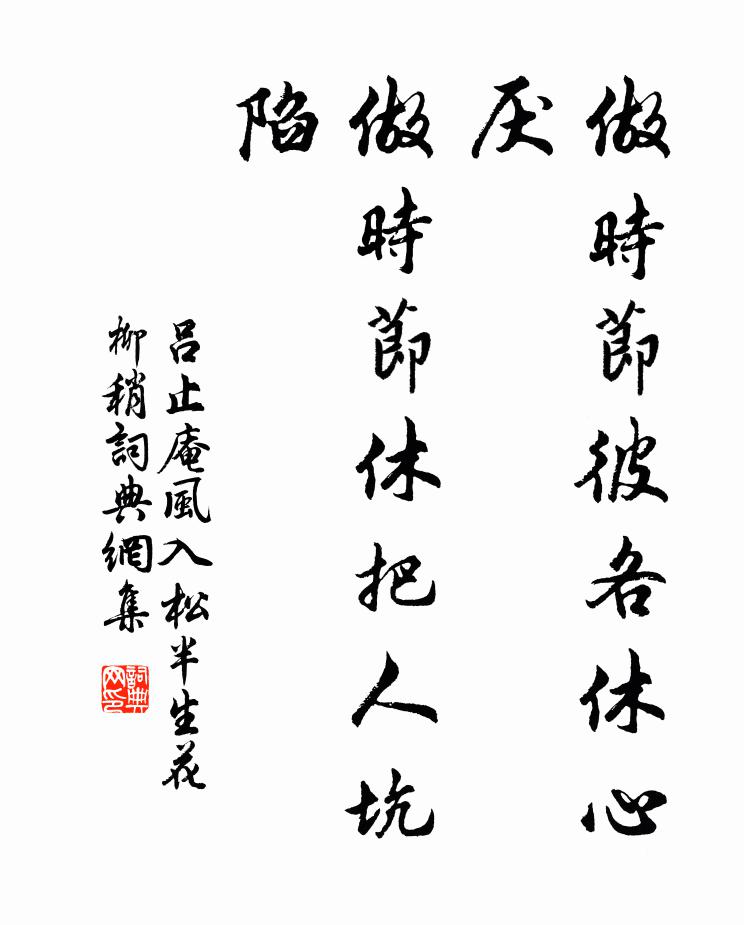 做時節彼各休心
厌
做時節休把人坑
陷
吕止庵風入松半生花
柳稍詞典網集
詞典
网印